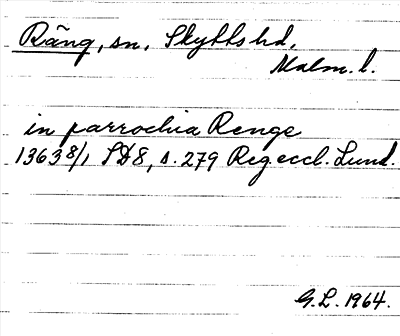 Räng, sn, Skytts hd,
Malm. l.
in parrochia Renge
1363 8/1 SD8, s. 279 Reg. eccl. Lund.
G.L. 1964.